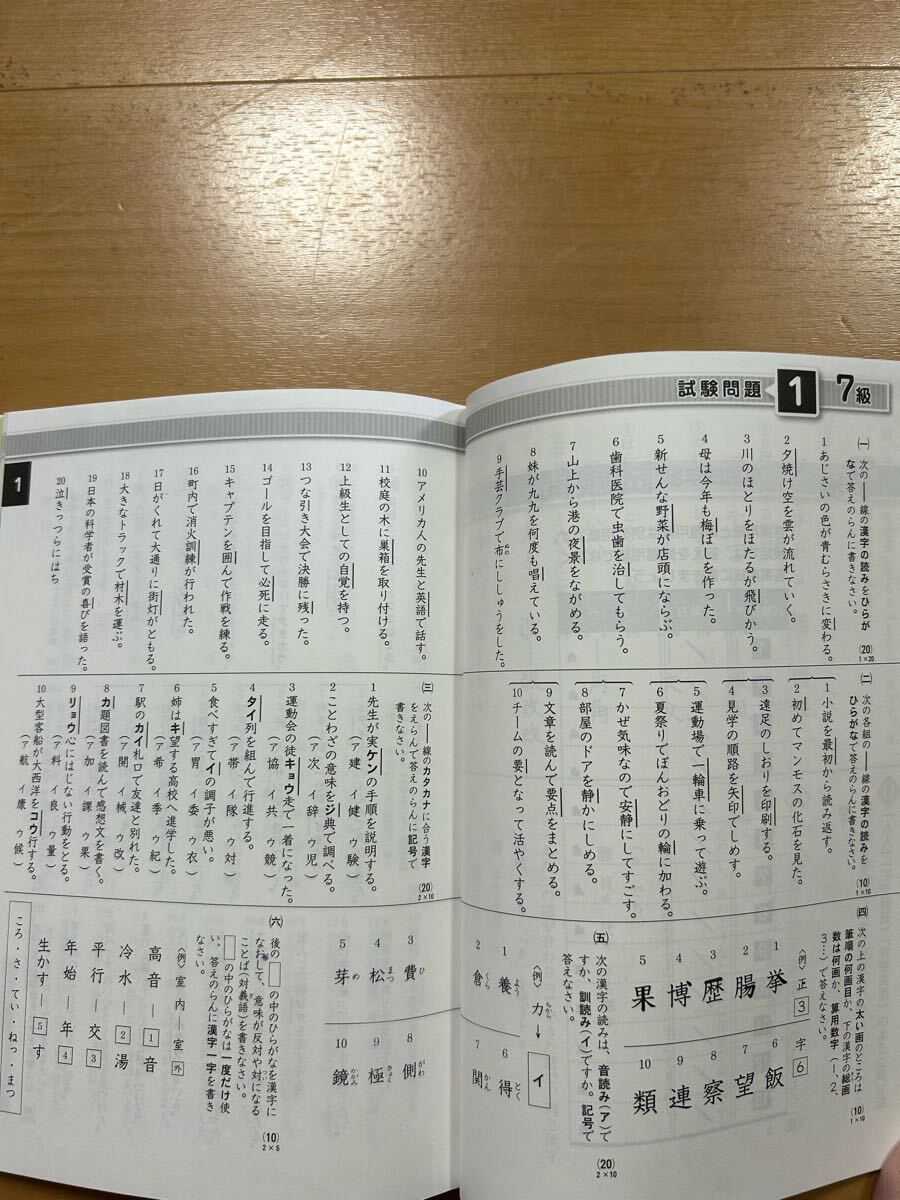 試験問題 1 7級
㈠ 次の――線の漢字の読みをひらが
なで答えのらんに書きなさい。
(20)
1×20
1 あじさいの色が青むらさきに変わる。
2 夕焼け空を雲が流れていく。
3 川のほとりをほたるが飛びかう。
4 母は今年も梅ぼしを作った。
5 新せんな野菜が店頭にならぶ。
6 歯科医院で虫歯を治してもらう。
7 山上から港の夜景をながめる。
8 妹が九九を何度も唱えている。
9 手芸クラブで布にししゅうをした。
ぬの
10 アメリカ人の先生と英語で話す。
11 校庭の木に巣箱を取り付ける。
12 上級生としての自覚を持つ。
13 つな引き大会で決勝に残った。
14 ゴールを目指して必死に走る。
15 キャプテンを囲んで作戦を練る。
16 町内で消火訓練が行われた。
17 日がくれて大通りに街灯がともる。
18 大きなトラックで材木を運ぶ。
19 日本の科学者が受賞の喜びを語った。
20 泣きっつらにはち
㈡ 次の各組の――線の漢字の読みを
ひらがなで答えのらんに書きなさい。
(10)
1×10
1 小説を最初から読み返す。
2 初めてマンモスの化石を見た。
3 遠足のしおりを印刷する。
4 見学の順路を矢印でしめす。
5 運動場で一輪車に乗って遊ぶ。
6 夏祭りでぼんおどりの輪に加わる。
7 かぜ気味なので安静にしてすごす。
8 部屋のドアを静かにしめる。
9 文章を読んで要点をまとめる。
10 チームの要となって活やくする。
㈢ 次の――線のカタカナに合う漢字
をえらんで答えのらんに記号で
書きなさい。
(20)
2×10
1 先生が実ケンの手順を説明する。
(ア 建 イ 健 ウ 験)
2 ことわざの意味をジ典で調べる。
(ア 次 イ 辞 ウ 児)
3 運動会の徒キョウ走で一着になった。
(ア 協 イ 共 ウ 競)
4 タイ列を組んで行進する。
(ア 帯 イ 隊 ウ 対)
5 食べすぎてイの調子が悪い。
(ア 胃 イ 委 ウ 衣)
6 姉はキ望する高校へ進学した。
(ア 希 イ 季 ウ 紀)
7 駅のカイ札口で友達と別れた。
(ア 開 イ 械 ウ 改)
8 カ題図書を読んで感想文を書く。
(ア 加 イ 課 ウ 果)
9 リョウ心にはじない行動をとる。
(ア 料 イ 良 ウ 量)
10 大型客船が大西洋をコウ行する。
(ア 航 イ 康 ウ 候)
㈣ 次の上の漢字の太い画のところは
筆順の何画目か、下の漢字の総画
数は何画か、算用数字(1、2、
3…)で答えなさい。
(10)
1×10
〈例〉 正 3 字 6
1 挙
2 腸
3 歴
4 博
5 果
6 飯
7 望
8 察
9 連
10 類
㈤ 次の漢字の読みは、音読み(ア)で
すか、訓読み(イ)ですか。記号で
答えなさい。
(20)
2×10
〈例〉 力 ちから → イ
1 養 よう
2 倉 くら
3 費 ひ
4 松 まつ
5 芽 め
6 得 とく
7 関 かん
8 側 がわ
9 極 きょく
10 鏡 かがみ
㈥ 後の□の中のひらがなを漢字に
なおして、意味が反対や対になる
ことば(対義語)を書きなさい。
□の中のひらがなは一度だけ使
い、答えのらんに漢字一字を書き
なさい。
(10)
2×5
〈例〉 室内―室外
高音―1音
冷水―2湯
平行―交3
年始―年4
生かす―5す
ころ・さ・てい・ねっ・まつ
1